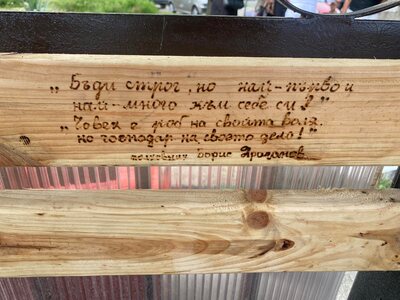 „Бъди строг, но най-първо и
най-много към себе си!"
„Човек е роб на своята воля.
но господар на своето дело!"
полковник Борис Дрангов